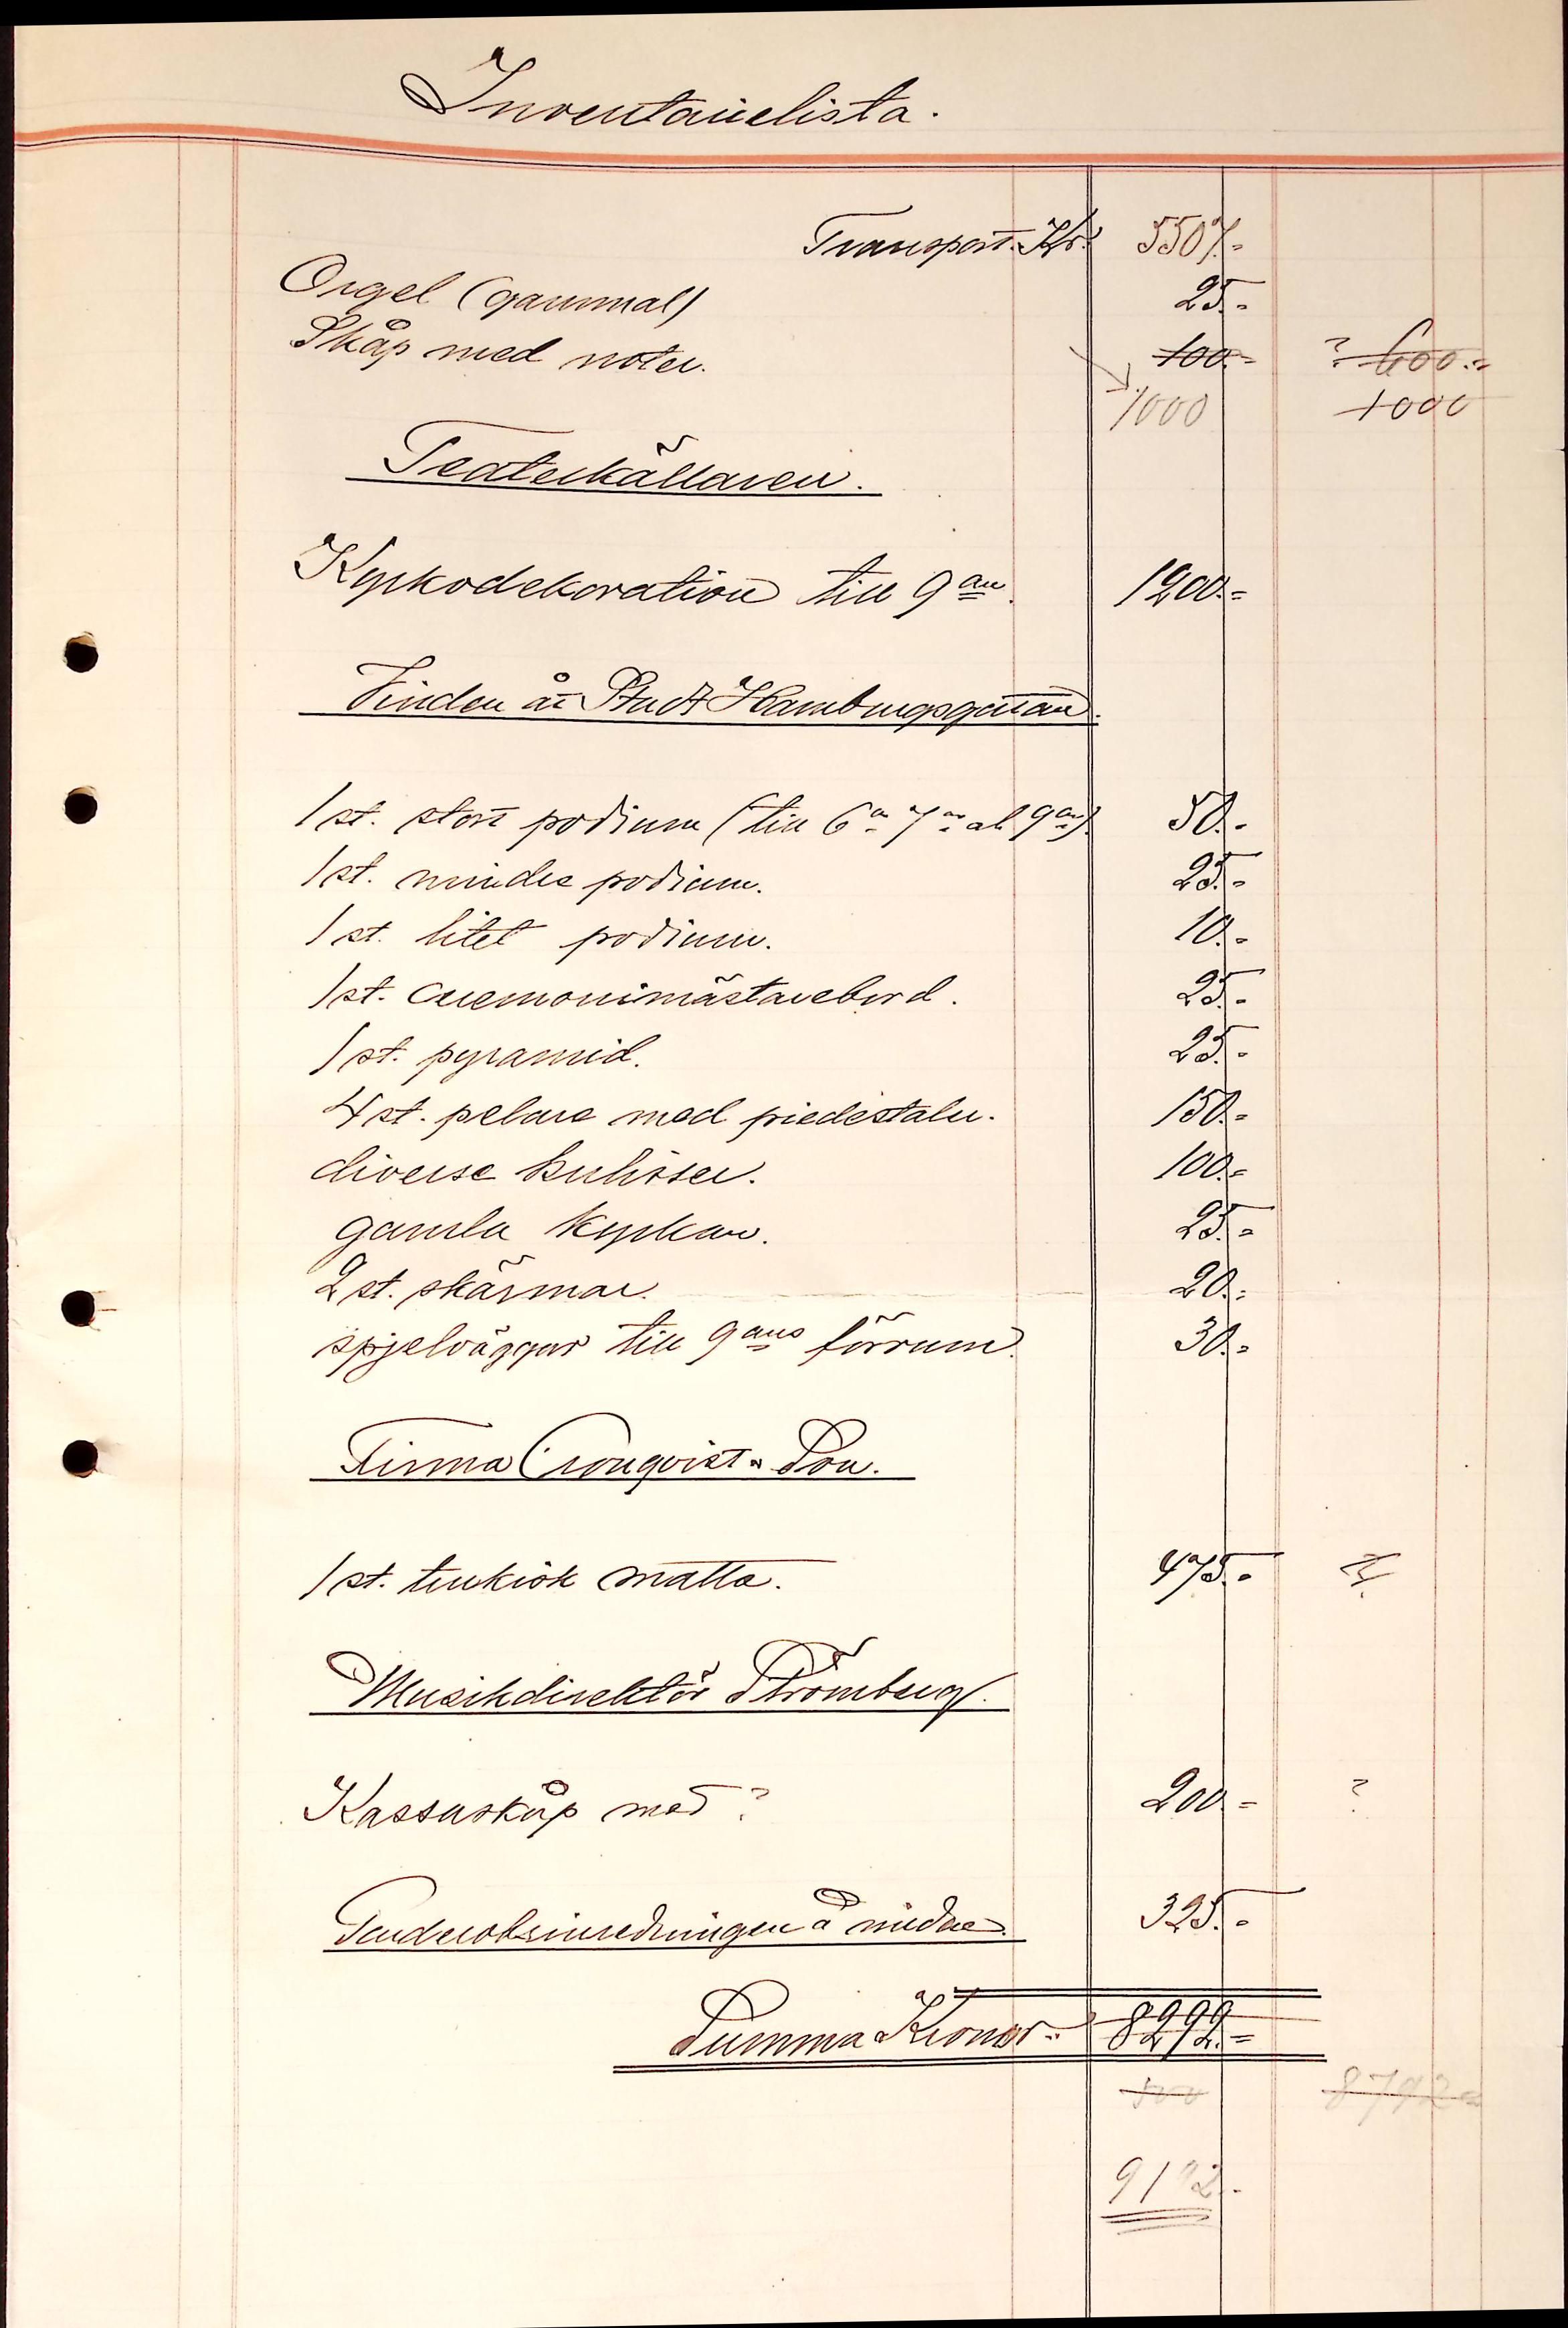 Inventarielista.
Transport. Kr. 5507.-
Orgel (gammal) 25.-
Skåp med noter. 100.- ? 600.-
1000 1000
Teaterkällaren.
Kyrkodekoration till 9an. 1200.-
Vinden åt Stadt Hamburgsgatan.
1 st. stort podium (till 6a 7a och 9an). 50.-
1 st. mindre podium. 25.-
1 st. litet podium. 10.-
1 st. ceremonimästarebord. 25.-
1 st. pyramid. 25.-
4 st. pelare med piedestaler. 150.-
diverse kulisser. 100.-
gamla kyrkan. 25.-
2 st. skärmar. 20.-
spjelväggar till 9ans förrum. 30.-
Firma Cronqvist & Son.
1 st. turkisk matta. 475.-
Musikdirektör Strömberg.
Kassaskåp med ? 200.- ?
Garderobsinredningen å nedre. 325.-
Summa Kronor. 8292.-
500 8792.-
9192.-